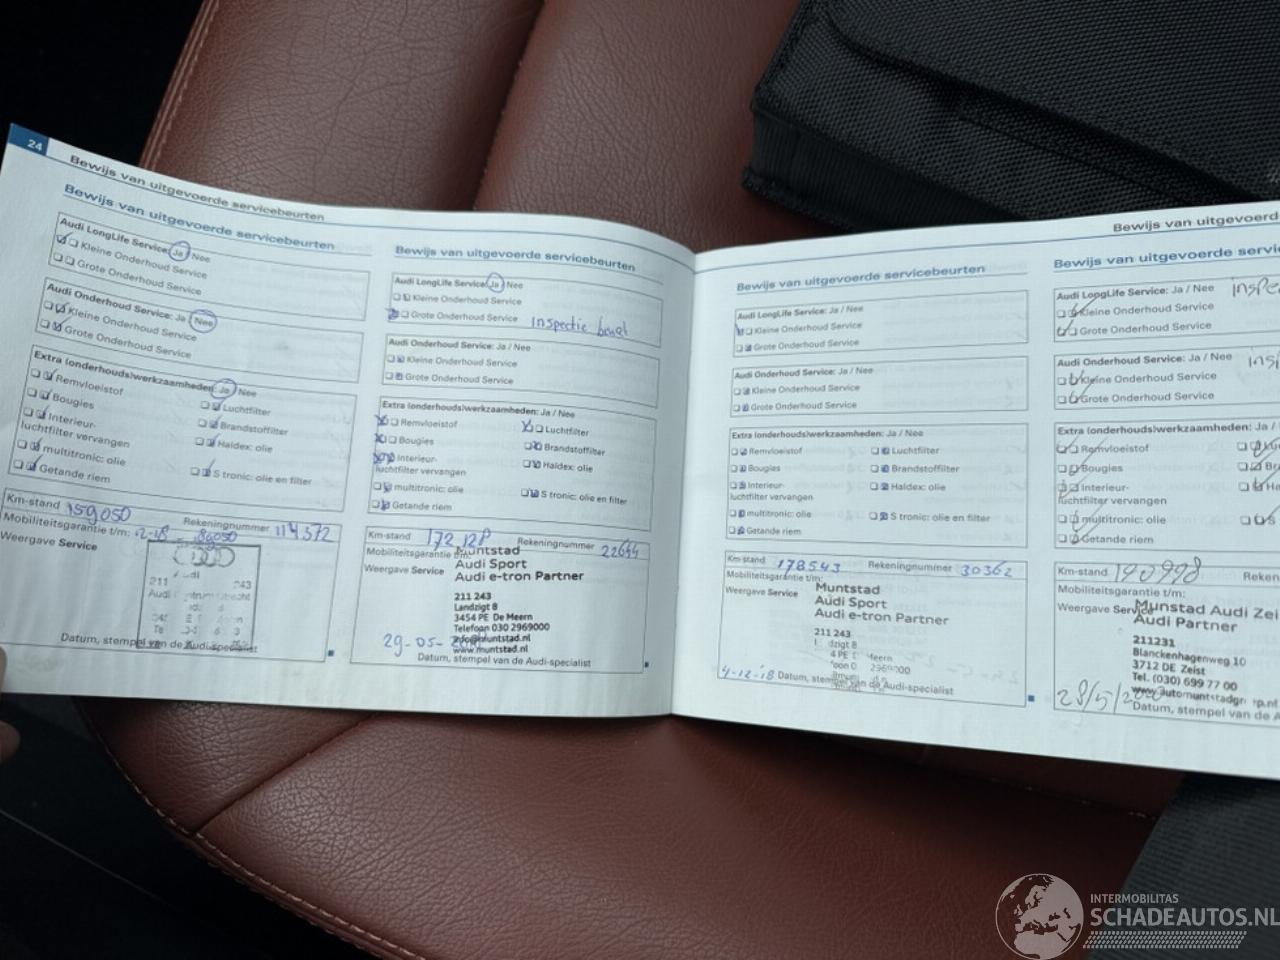 24
Bewijs van uitgevoerde servicebeurten
Bewijs van uitgevoerde servicebeurten
Audi LongLife Service: Ja / Nee
Kleine Onderhoud Service
Grote Onderhoud Service
Audi Onderhoud Service: Ja / Nee
Kleine Onderhoud Service
Grote Onderhoud Service
Extra (onderhouds)werkzaamheden: Ja / Nee
Remvloeistof
Luchtfilter
Bougies
Brandstoffilter
Interieur-
luchtfilter vervangen
Haldex: olie
multitronic: olie
S tronic: olie en filter
Getande riem
Km-stand 159050 Rekeningnummer 114372
Mobiliteitsgarantie t/m:
Weergave Service
211 243
Datum, stempel van de Audi-specialist
Bewijs van uitgevoerde servicebeurten
Audi LongLife Service: Ja / Nee
Kleine Onderhoud Service
Grote Onderhoud Service Inspectie
Audi Onderhoud Service: Ja / Nee
Kleine Onderhoud Service
Grote Onderhoud Service
Extra (onderhouds)werkzaamheden: Ja / Nee
Remvloeistof
Luchtfilter
Bougies
Brandstoffilter
Interieur-
luchtfilter vervangen
Haldex: olie
multitronic: olie
S tronic: olie en filter
Getande riem
Km-stand 172 128 Rekeningnummer
Mobiliteitsgarantie t/m:
Weergave Service
Muntstad
Audi Sport
Audi e-tron Partner
211 243
Landzigt 8
3454 PE De Meern
Telefoon 030 2969000
info@muntstad.nl
www.muntstad.nl
29-05-
Datum, stempel van de Audi-specialist
Bewijs van uitgevoerde servicebeurten
Audi LongLife Service: Ja / Nee
Kleine Onderhoud Service
Grote Onderhoud Service
Audi Onderhoud Service: Ja / Nee
Kleine Onderhoud Service
Grote Onderhoud Service
Extra (onderhouds)werkzaamheden: Ja / Nee
Remvloeistof
Luchtfilter
Bougies
Brandstoffilter
Interieur-
luchtfilter vervangen
Haldex: olie
multitronic: olie
S tronic: olie en filter
Getande riem
Km-stand 178543 Rekeningnummer 30362
Mobiliteitsgarantie t/m:
Weergave Service
Muntstad
Audi Sport
Audi e-tron Partner
211 243
4-12-'18 Datum, stempel van de Audi-specialist
Bewijs van uitgevoerd
Bewijs van uitgevoerde servi
Audi LongLife Service: Ja / Nee Inspe
Kleine Onderhoud Service
Grote Onderhoud Service
Audi Onderhoud Service: Ja / Nee Insp
Kleine Onderhoud Service
Grote Onderhoud Service
Extra (onderhouds)werkzaamheden: Ja /
Remvloeistof
Bougies
Interieur-
luchtfilter vervangen
multitronic: olie
Getande riem
Km-stand 190998 Reken
Mobiliteitsgarantie t/m:
Weergave Service
Munstad Audi Zei
Audi Partner
211231
Blanckenhagenweg 10
3712 DE Zeist
Tel. (030) 699 77 00
28/5/
Datum, stempel van de A
INTERMOBILITAS
SCHADEAUTOS.NL